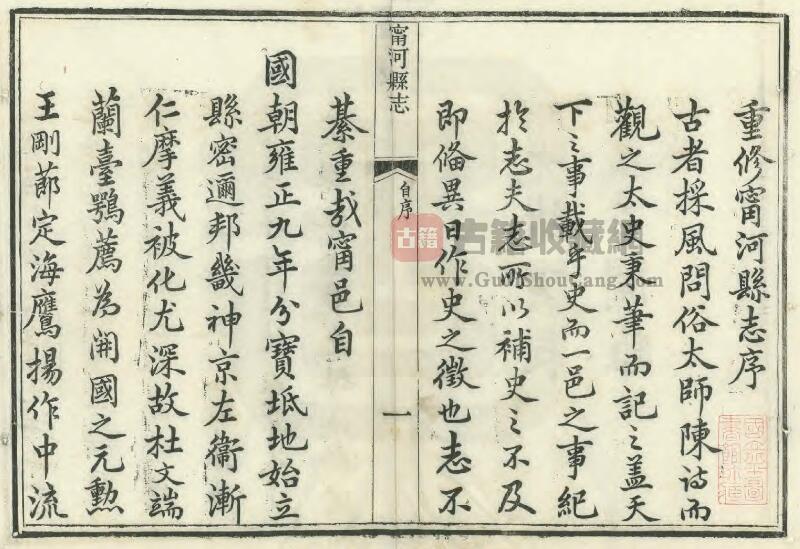 重修甯河縣志序
古者採風問俗太師陳詩而
觀之太史秉筆而記之蓋天
下之事載乎史而一邑之事紀
於志夫志所以補史之不及
即俻異日作史之徵也志不
甯河縣志
自序
一
綦重哉甯邑自
國朝雍正九年分寶坻地始立
縣密邇邦畿神京左衞漸
仁摩義被化尤深故杜文端
蘭臺鶚薦為開國之元勳
王剛節定海鷹揚作中流
古籍
古籍收藏網
www.GuJiShouCang.com